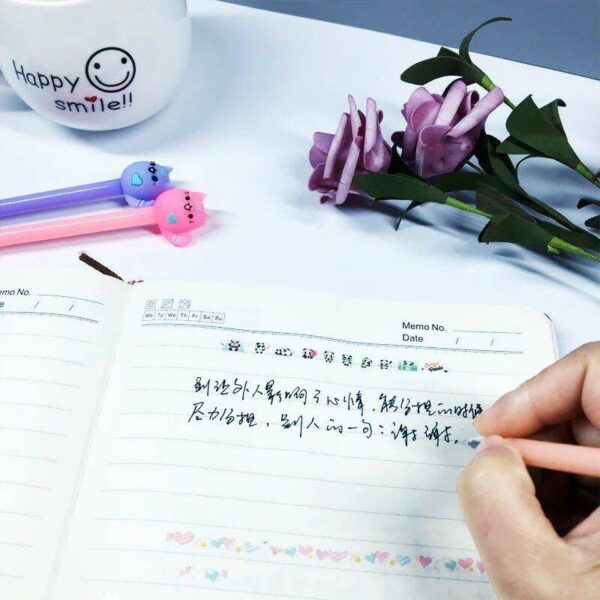 Happy
smile!!
emo No.
e / /
Mo Tu We Th Fr Sa Su
Memo No.
Date / /
别让外人影响了心情,能分担的时候
尽力分担,别人的一句:谢谢谢谢。